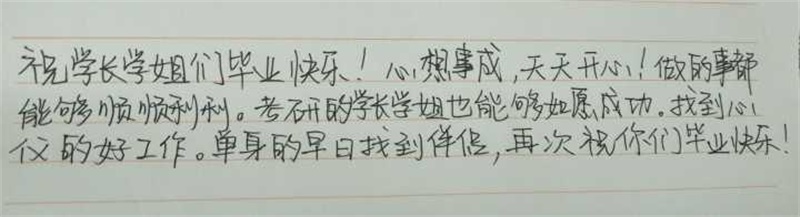 祝学长学姐们毕业快乐！心想事成，天天开心！做的事都
能够顺顺利利。考研的学长学姐也能够如愿成功。找到心
仪的好工作。单身的早日找到伴侣，再次祝你们毕业快乐！